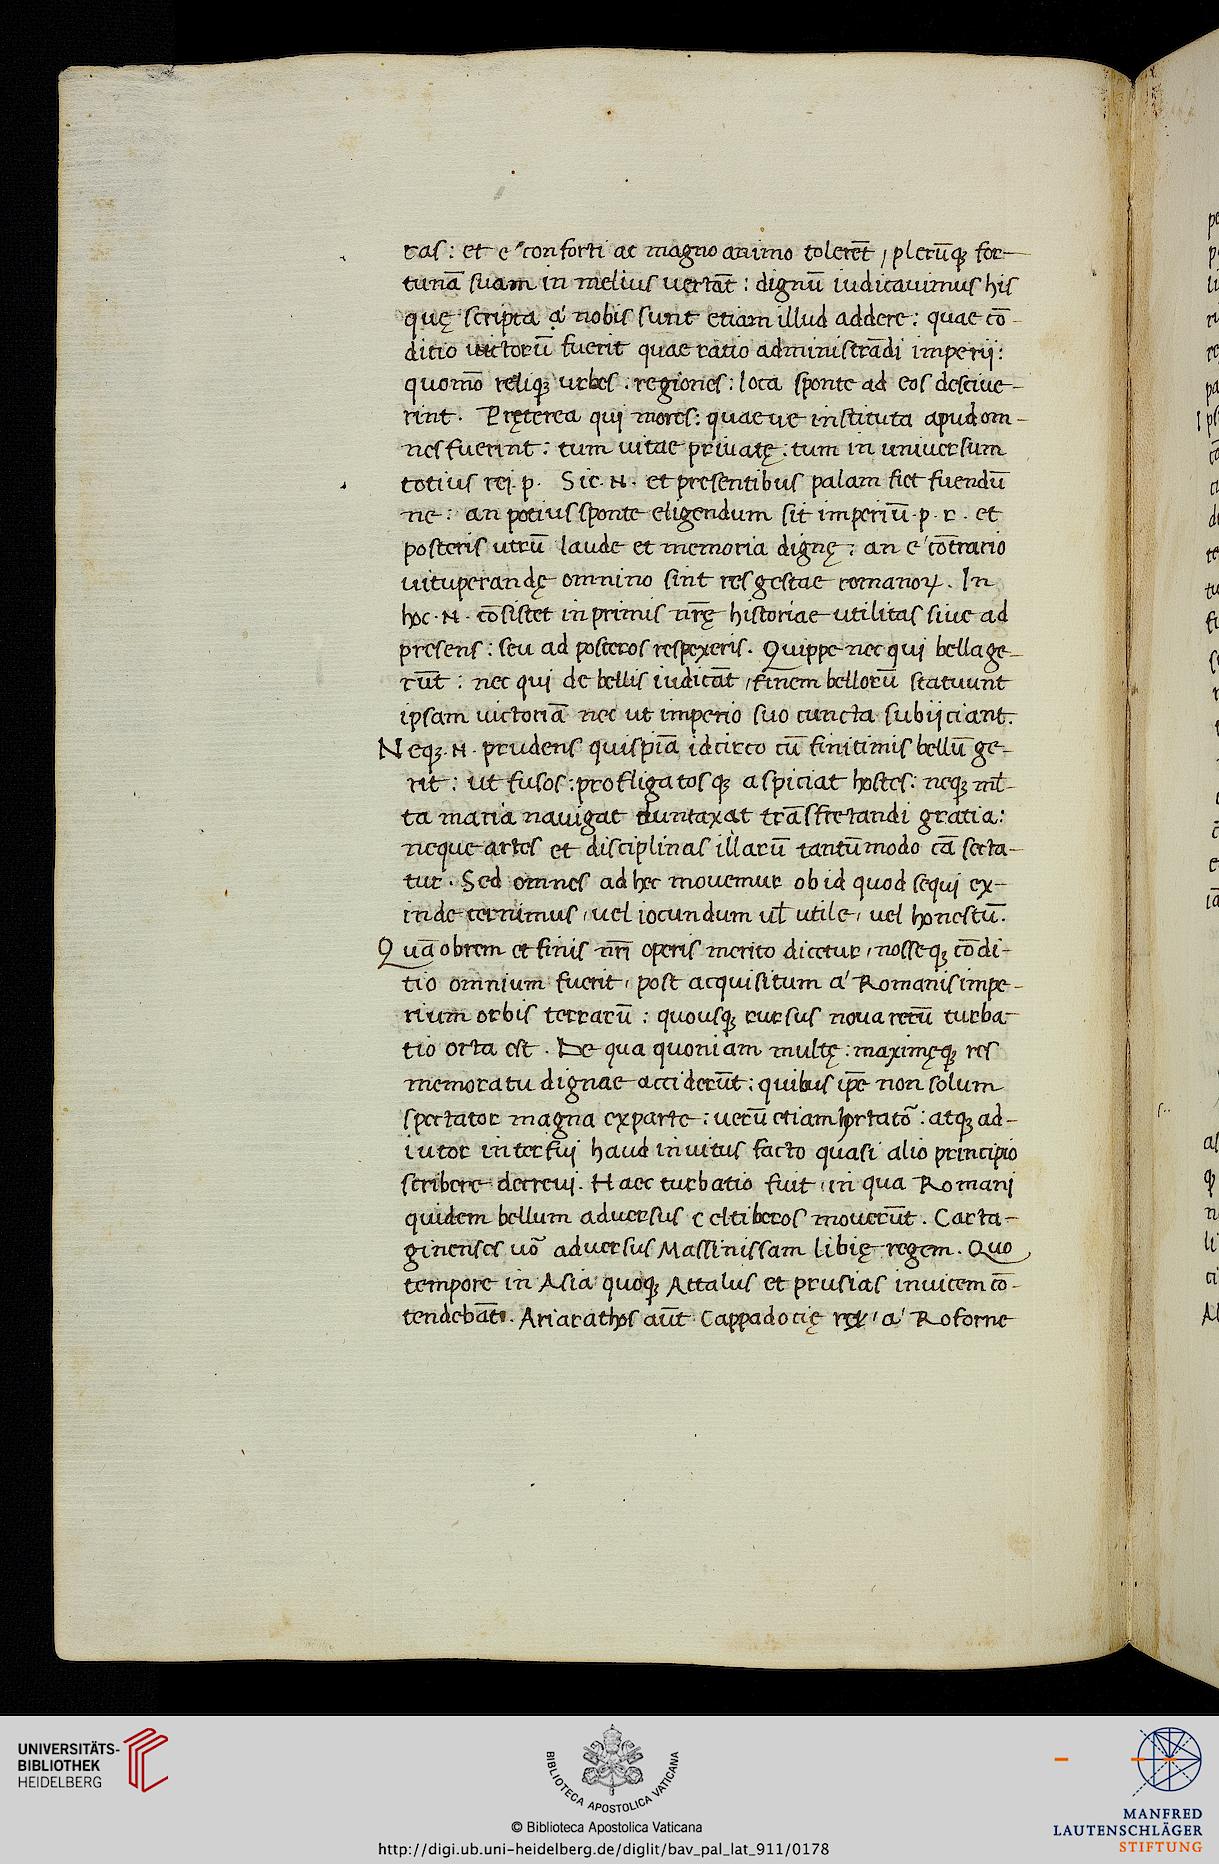 ras: et e ̓con forti ac magno animo tolerēt, plerūq̨ for-
tunā suam in melius vertāt: dignū iudicauimus his
quę scripta a' nobis sunt etiam illud addere: quae cō-
ditio uictorū fuerit quae ratio administrādi imperij:
quomō reliq̨ urbes. regiones: loca sponte ad eos desciue-
rint. Pręterea qui mores: quaeue instituta apud om-
nes fuerint: tum uitae priuatę: tum in uniuersum
totius rei. p. Sic. N. et presentibus palam fiet fuendū
ne: an potius sponte eligendum sit imperiū. p. r. et
posteris utrū laude et memoria dignę: an e' cōtrario
uituperandę omnino sint res gestae romanoꝝ. In
hoc. N. cōsistet in primis nr̄ę historiae utilitas siue ad
presens: seu ad posteros respexeris. Quippe nec qui bella ge-
rūt: nec qui de bellis iudicāt, finem bellorū statuunt
ipsam uictoriā nec ut imperio suo cuncta subijciant.
Neq̨. N. prudens quispiā idcirco cū finitimis bellū ge-
rit: ut fusos: profligatosq̨ aspiciat hostes: neq̨ ml̄-
ta maria nauigat duntaxat trāsfretandi gratia:
neque artes et disciplinas illarū tantūmodo cā secta-
tur. Sed omnes ad hec mouemur ob id quod sequi ex-
inde cernimus, uel iocundum ul̄ utile, uel honestū.
Quāobrem et finis nr̄i operis merito dicetur, nosse q̨ cōdi-
tio omnium fuerit, post acquisitum a' Romanis impe-
rium orbis terrarū: quousq̨ rursus noua rerū turba-
tio orta est. De qua quoniam multę: maximęq̨ res
memoratu dignae acciderūt: quibus ip̄e non solum
spectator magna ex parte: uerū etiam hortatō: atq̨ ad-
iutor interfui haud inuitus facto quasi alio principio
scribere decreui. Haec turbatio fuit, in qua Romani
quidem bellum aduersus celtiberos mouerūt. Carta-
ginenses uō aduersus Massinissam libię regem. Quo
tempore in Asia quoq̨ Attalus et prusias inuicem cō-
tendebāt. Ariarathes aūt Cappadocię rex, a' Roforne
UNIVERSITÄTS-
BIBLIOTHEK
HEIDELBERG
BIBLIOTECA APOSTOLICA VATICANA
© Biblioteca Apostolica Vaticana
http://digi.ub.uni-heidelberg.de/diglit/bav_pal_lat_911/0178
MANFRED
LAUTENSCHLÄGER
STIFTUNG